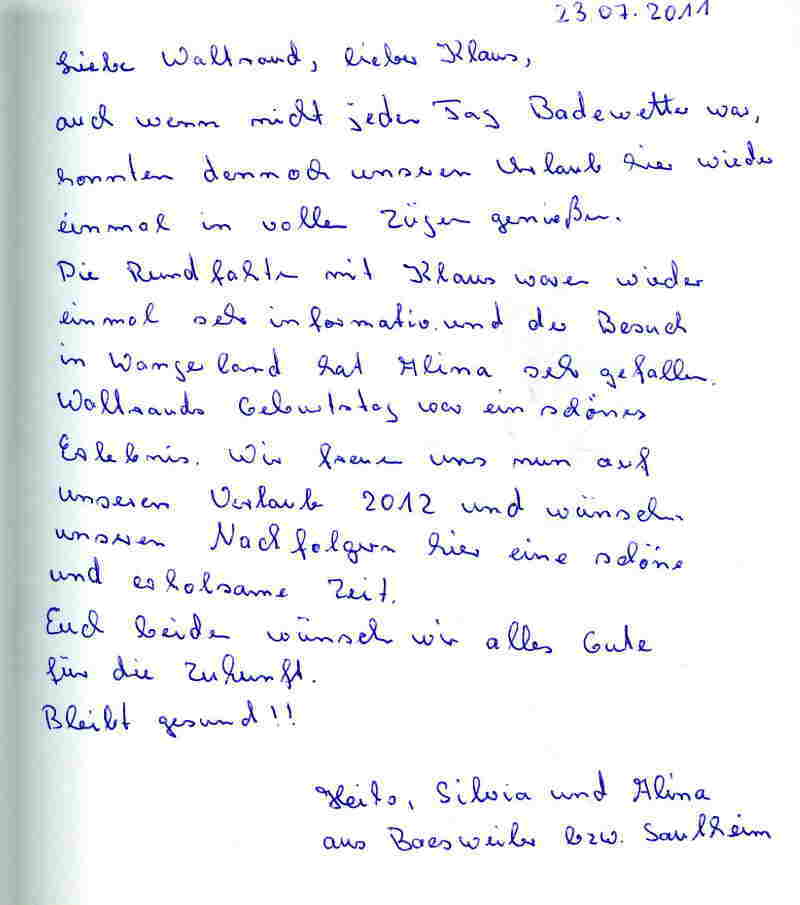 23.07.2011
Liebe Waltraud, lieber Klaus,
auch wenn nicht jeden Tag Badewetter war,
konnten dennoch unseren Urlaub hier wieder
einmal in vollen Zügen genießen.
Die Rundfahrten mit Klaus waren wieder
einmal sehr informativ und der Besuch
in Wangerland hat Alina sehr gefallen.
Waltrauds Geburtstag war ein schönes
Erlebnis. Wir freuen uns nun auf
unseren Urlaub 2012 und wünschen
unseren Nachfolgern hier eine schöne
und erholsame Zeit.
Euch beiden wünschen wir alles Gute
für die Zukunft.
Bleibt gesund!!
Silvia und Alina
aus Baesweiler bzw. Saulheim